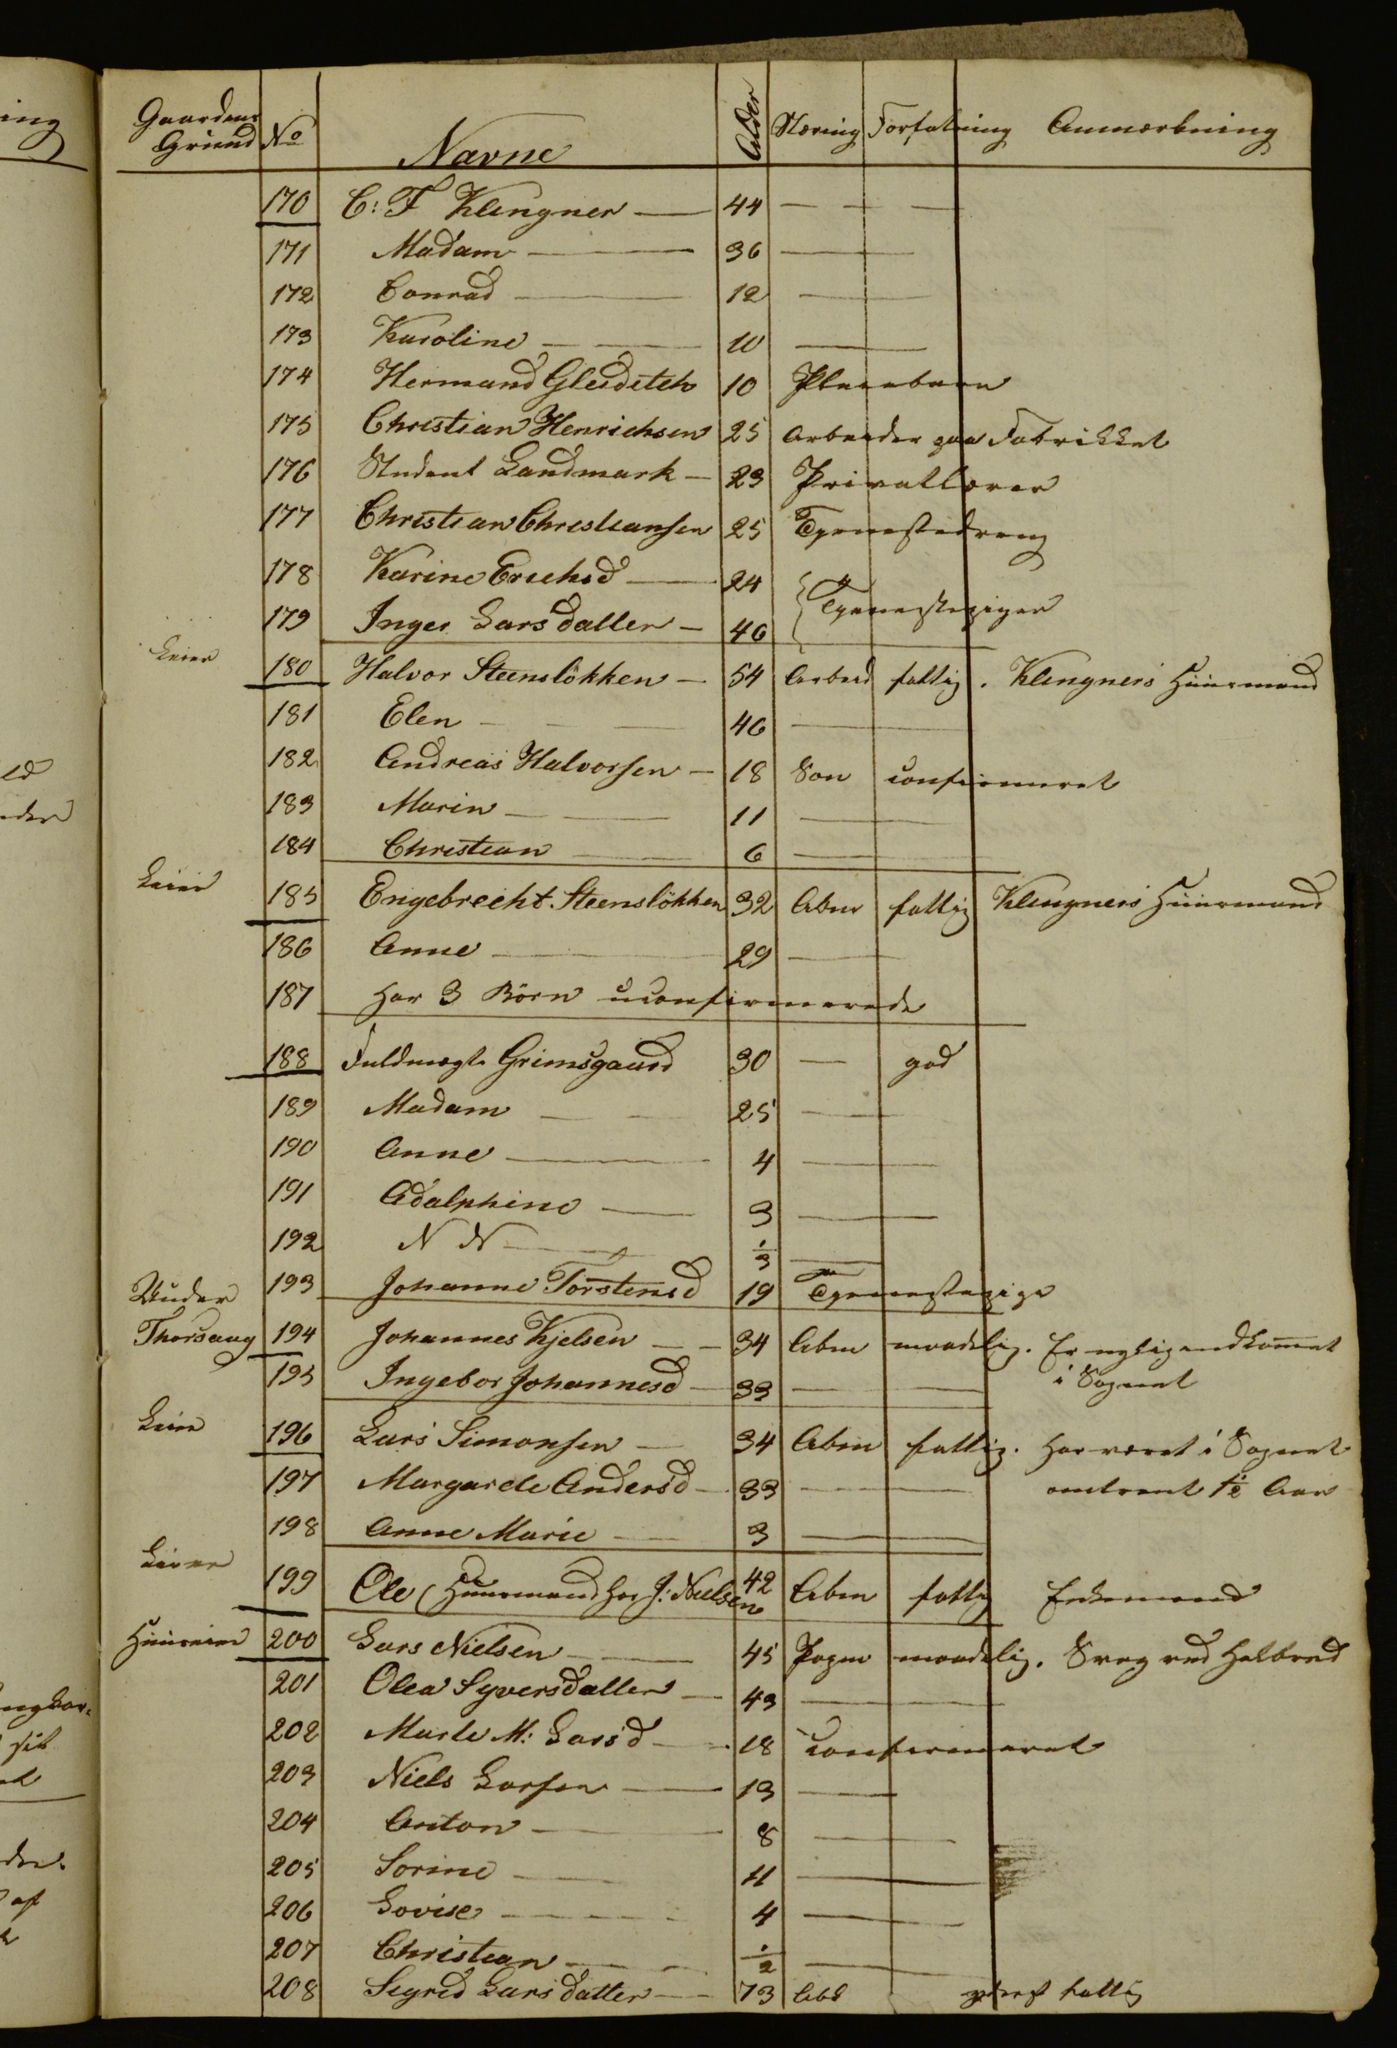 Gaardens Grund No Navne Alder Næring Forfatning Anmærkning
170 C: F Klingner — 44 — — —
171 Madam — 36 —
172 Conrad — 12 —
173 Karoline — 10 —
174 Hermand Gleditch 10 Pleiebarn
175 Christian Henrichsen 25 Arbeider paa Fabrikket
176 Student Landmark — 23 Privatlærer
177 Christian Christiansen 25 Tjenestedreng
178 Karine Erichsd — 24 Tjenestepiger
179 Inger Larsdatter — 46
Leier 180 Halvor Steensløkken — 54 Arbeid fattig. Klingners Huusmand
181 Elen — 46 —
182 Andreas Halvorsen — 18 Søn confirmeret
183 Marin — 11 —
184 Christian — 6 —
Leier 185 Engebrecht Steensløkken 32 Abm fattig Klingners Huusmand
186 Anne — 29 —
187 har 3 Börn uconfirmerede
188 Fuldmægt. Grimsgaard 30 — god
189 Madam — 25 —
190 Anne — 4 —
191 Adalphine — 3 —
192 N N — 1/3 —
Under 193 Johanne Torstensd 19 Tjenestepige
Thorsaug 194 Johannes Kjelsen — 34 Abm maadelig. Er nyligen ankommet
195 Ingebor Johannesd — 33 — i Sognet
Leier 196 Lars Simonsen — 34 Abm fattig. har været i Sognet
197 Margarete Andersd — 33 — omtrent 1/2 Aar
198 Anne Marie — 3 —
Leier 199 Ole (Huusmand hos J: Nielsen 42 Abm fattig Enkemand
Huuseier 200 Lars Nielsen — 45 maadelig. Svag ved Helbred
201 Olea Syversdatter — 43 —
202 Marte M: Larsd — 18 confirmeret
203 Niels Larsen — 13 —
204 Anton — 8 —
205 Sorine — 11 —
206 Lovise — 4 —
207 Christian — 1/2 —
208 Sigrid Larsdatter — 73 yderst fattig